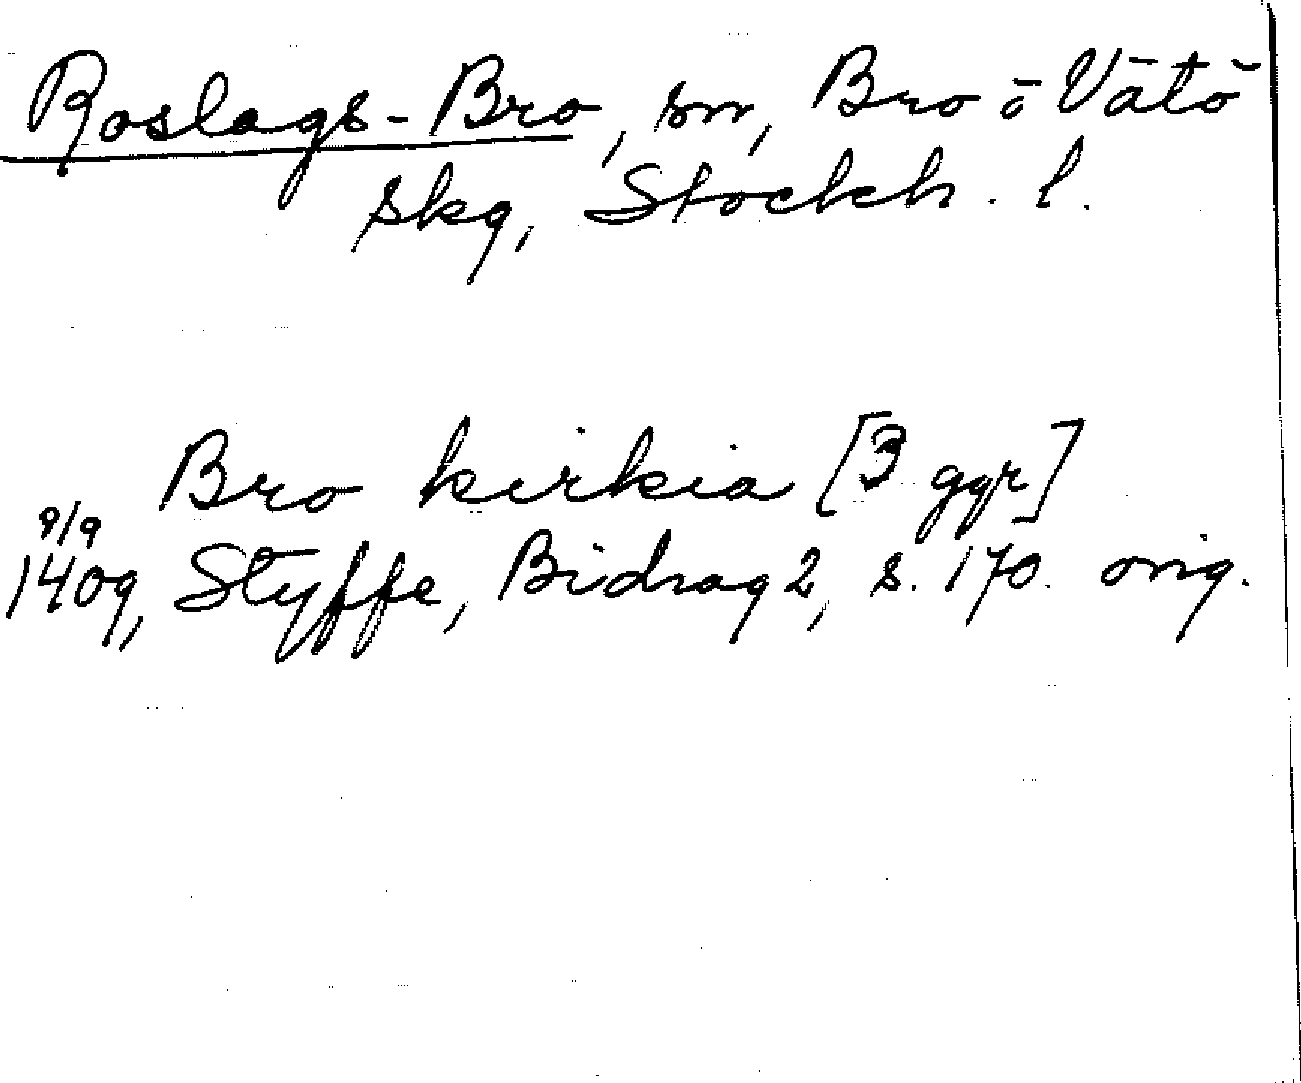 Roslags-Bro, sn, Bro o Vätö
skg, Stockh. l.
Bro kirkia [3 ggr]
9/9
1409, Styffe, Bidrag 2, s. 170. orig.